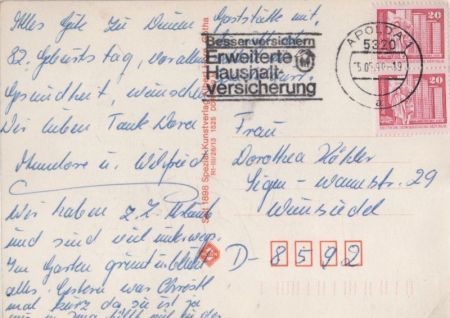 Alles Gute zu Deinem
82. Geburtstag, vor allem
Gesundheit, wünschen
Dir liebe Tante Dora
Hannelore u. Wilfried
Wir haben z. Z. Urlaub
und sind viel unterwegs.
Im Garten grünt u. blüht
alles. Gestern war Christl
mal kurz da, sie ist ja
Besser versichern
Erweiterte
Haushalt-
versicherung
APOLDA 1
5320
a
20
20
Seit 1898 Spezial-Kunstverlag
Frau
Dorothea Köhler
29
Wunsiedel
D-8592